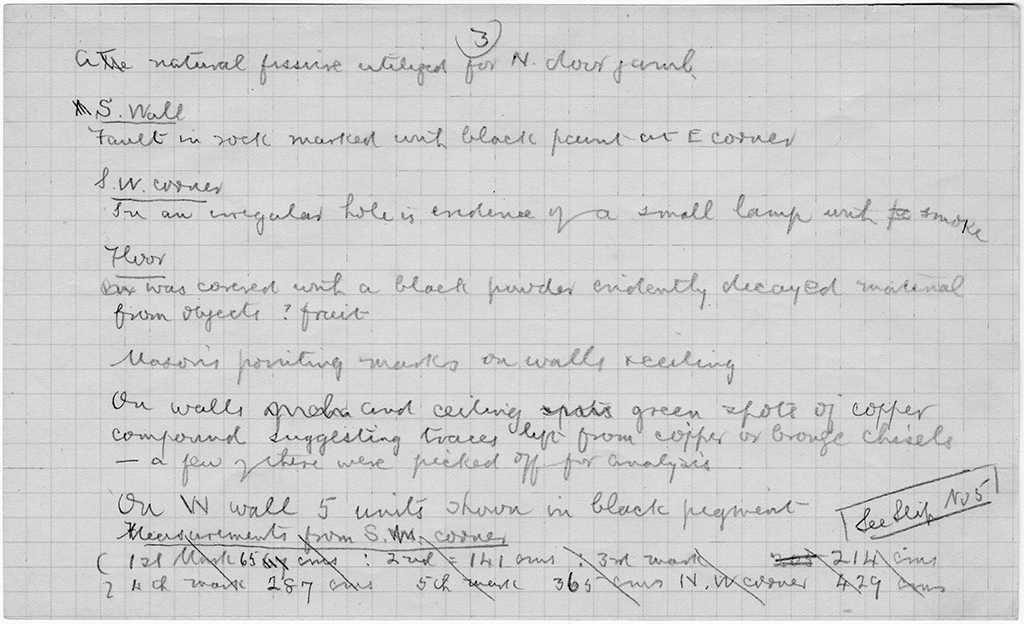 3
A natural fissure utilized for N. door jamb
S. Wall
Fault in rock marked with black paint at E corner
S.W. corner
In an irregular hole is evidence of a small lamp with smoke
Floor
was covered with a black powder evidently decayed material
from objects ? fruit
Mason's pointing marks on walls & ceiling
On walls and ceiling spots green spots of copper
compound suggesting traces left from copper or bronze chisels
— a few of these were picked off for analysis
On W wall 5 units shown in black pigment
See Slip No 5
Measurements from S.W. corner
1st Mark 65 cms : 2nd = 141 cms : 3rd mark 205 214 cms
4th mark 287 cms 5th mark 365 cms N.W corner 429 cms